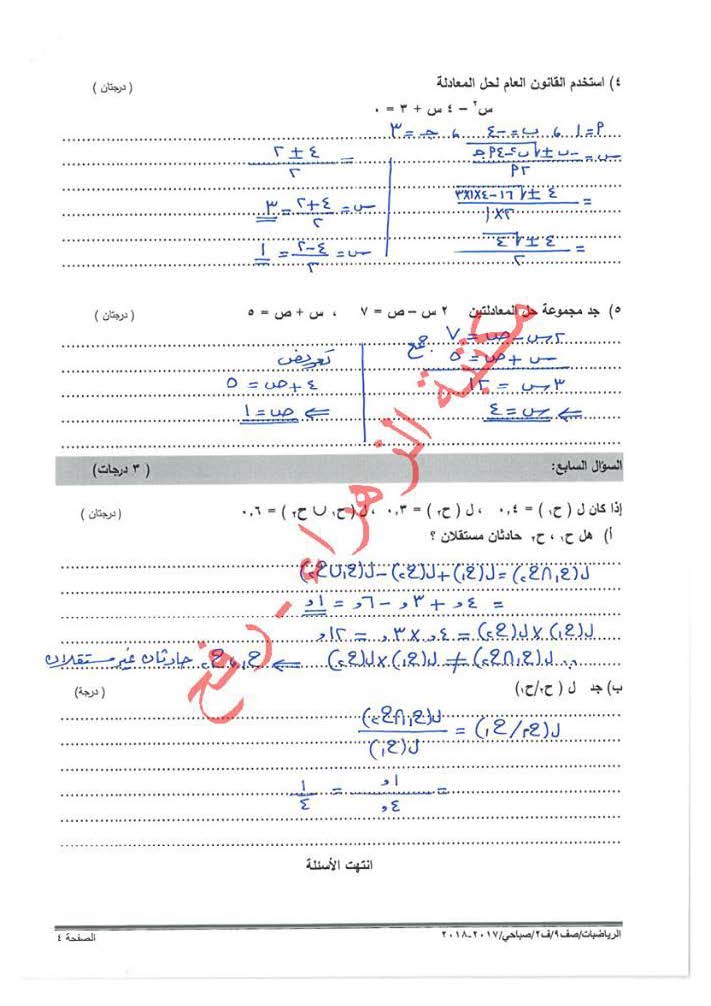 ٤) استخدم القانون العام لحل المعادلة (درجتان)
س٢ – ٤ س + ٣ = ٠
أ = ١ ، ب = -٤ ، جـ = ٣
س = -ب ± √ب٢ - ٤أجـ / ٢أ
= ٤ ± √١٦ - ٤×١×٣ / ٢×١
= ٤ ± √٤ / ٢
= ٤ ± ٢ / ٢
س = ٤+٢ / ٢ = ٣
س = ٤-٢ / ٢ = ١
٥) جد مجموعة حل المعادلتين ٢ س – ص = ٧ ، س + ص = ٥ (درجتان)
٢س - ص = ٧
س + ص = ٥ جمع
٣س = ١٢
⇐ س = ٤
تعويض
٤ + ص = ٥
⇐ ص = ١
السؤال السابع: (٣ درجات)
إذا كان ل (ح١) = ٠,٤ ، ل (ح٢) = ٠,٣ ، ل (ح١ ∪ ح٢) = ٠,٦ (درجتان)
أ) هل ح١ ، ح٢ حادثان مستقلان ؟
ل(ح١∩ح٢) = ل(ح١) + ل(ح٢) - ل(ح١∪ح٢)
= ٤و + ٣و - ٦و = ١و
ل(ح١) × ل(ح٢) = ٤و × ٣و = ١٢و
∴ ل(ح١∩ح٢) ≠ ل(ح١) × ل(ح٢) ⇐ ح١، ح٢ حادثان غير مستقلان
ب) جد ل (ح٢/ح١) (درجة)
ل(ح٢/ح١) = ل(ح١∩ح٢) / ل(ح١)
= ١و / ٤و = ١ / ٤
انتهت الأسئلة
الرياضيات/صف٩/ف٢/صباحي/٢٠١٧-٢٠١٨ الصفحة ٤
مكتبة الزهراء - رفح